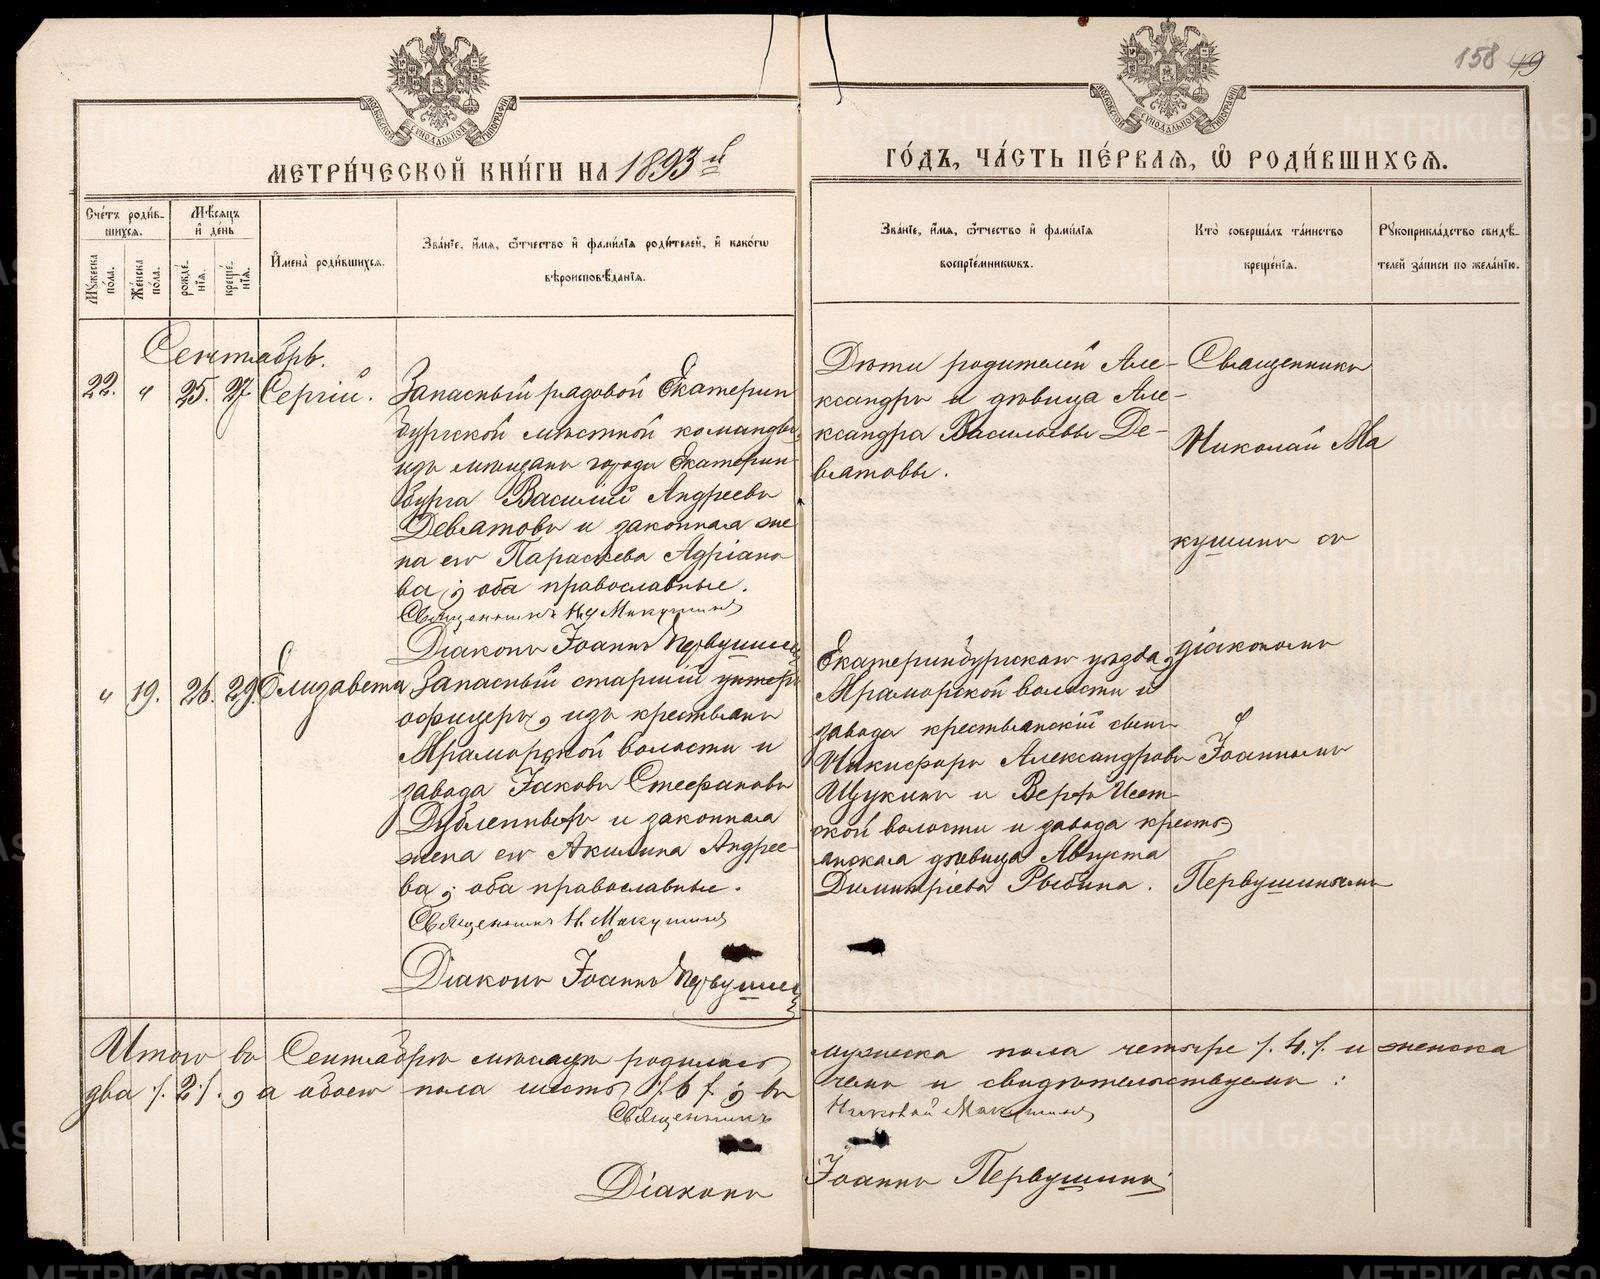 158 49
МОСКОВСКОЙ СѴНОДАЛЬНОЙ ТИПОГРАФІИ
МОСКОВСКОЙ СѴНОДАЛЬНОЙ ТИПОГРАФІИ
МЕТРИ́ЧЕСКОЙ КНИ́ГИ НА 1893й
ГО́ДЪ, ЧА́СТЬ ПЕ́РВАѦ, Ѡ҆ РОДИ́ВШИХСѦ.
Сче́тъ роди́в-
шихсѧ.
Мꙋжеска пола.
Же́нска по́ла.
Мѣ́сѧцъ и҆ де́нь
рожде́-
нїѧ.
креще́-
нїѧ.
И҆мена̀ роди́вшихсѧ.
Зва́нїе, и҆́мѧ, ѻ҆́тчество и҆ фами́лїѧ роди́телей, и҆ како́гѡ
вѣроисповѣ́данїѧ.
Зва́нїе, и҆́мѧ, ѻ҆́тчество и҆ фами́лїѧ
воспрїе́мникѡвъ.
Кто̀ соверша́лъ та́инство
креще́нїѧ.
Рꙋкоприкла́дство свидѣ́-
телей за́писи по жела́нїю.
Сентябрь.
22. " 25. 27. Сергій.
Запасный рядовой Екатерин
бургской мѣстной команды,
изъ мѣщанъ города Екатерин
бурга Василій Андреевъ
Девятовъ и законная же
на его Параскева Адріано
ва; оба православные.
Священникъ Н. Макушинъ
Діаконъ Іоаннъ Первушинъ
Дѣти родителей Але-
ксандръ и дѣвица Але-
ксандра Васильевы Де-
вятовы.
Священникъ
Николай Ма
кушинъ съ
діакономъ
Іоанномъ
Первушинымъ
" 19. 26. 29. Елизавета
Запасный старшій унтеръ
офицеръ, изъ крестьянъ
Мраморской волости и
завода Іаковъ Стефановъ
Дубленныхъ и законная
жена его Акилина Андрее-
ва; оба православные.
Священникъ Н. Макушинъ
Діаконъ Іоаннъ Первушинъ
Екатеринбургскаго уѣзда,
Мраморской волости и
завода крестьянскій сынъ
Никифоръ Александровъ
Щукинъ и Верхъ Исет-
ской волости и завода кресть
янская дѣвица Августа
Димитріева Рыбина.
Итого въ Сентябрѣ мѣсяцѣ родилось мужеска пола четыре /.4./ и женска
два /.2./, а обоего пола шесть /.6./; въ чемъ и свидѣтельствуемъ:
Священникъ Николай Макушинъ
Діаконъ Іоаннъ Первушинъ
METRIKI.GASO-URAL.RU